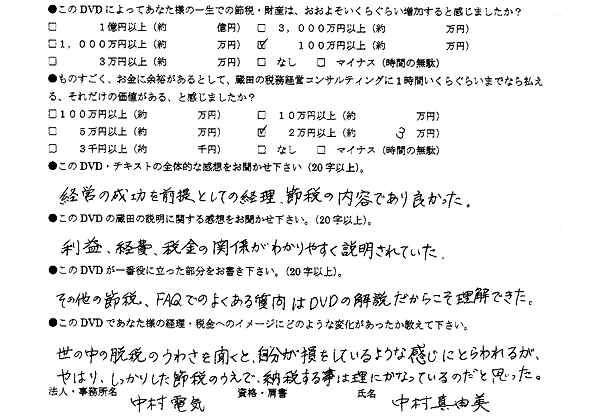 ●このDVDによってあなた様の一生での節税・財産は、おおよそいくらぐらい増加すると感じましたか？
□ 1億円以上（約 億円） □ 3，000万円以上（約 万円）
□1，000万円以上（約 万円） ☑ 100万円以上（約 万円）
□ 3万円以上（約 万円） □ なし □ マイナス（時間の無駄）
●ものすごく、お金に余裕があるとして、蔵田の税務経営コンサルティングに1時間いくらぐらいまでなら払え
る、それだけの価値がある、と感じましたか？
□100万円以上（約 万円） □ 10万円以上（約 万円）
□ 5万円以上（約 万円） ☑ 2万円以上（約 3 万円）
□ 3千円以上（約 千円） □ なし □ マイナス（時間の無駄）
●このDVD・テキストの全体的な感想をお聞かせ下さい（20字以上）。
経営の成功を前提としての経理、節税の内容であり良かった。
●このDVDの蔵田の説明に関する感想をお聞かせ下さい。（20字以上）。
利益、経費、税金の関係がわかりやすく説明されていた。
●このDVDが一番役に立った部分をお書き下さい。（20字以上）。
その他の節税、FAQでのよくある質問はDVDの解説だからこそ理解できた。
●このDVDであなた様の経理・税金へのイメージにどのような変化があったか教えて下さい。
世の中の脱税のうわさを聞くと、自分が損をしているような感じにとらわれるが、
やはり、しっかりした節税のうえで、納税する事は理にかなっているのだと思った。
法人・事務所名 資格・肩書 氏名
中村電気 中村真由美